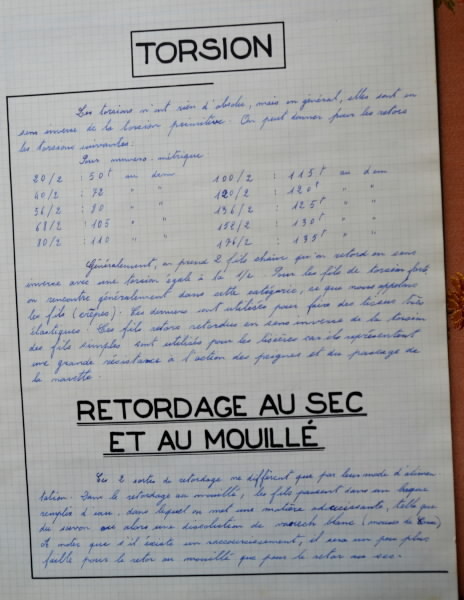 TORSION
Les torsions n'ont rien d'absolu, mais en général, elles sont en
sens inverse de la torsion primitive. On peut donner pour les retors
les torsions suivantes.
Pour numéro métrique
20/2 : 50t au dcm 100/2 : 115t au dcm
40/2 : 72 " " 120/2 : 120t " "
56/2 : 80 " " 136/2 : 125t " "
68/2 : 105 " " 152/2 : 130t " "
80/2 : 110 " " 176/2 : 135t " "
Généralement, on prend 2 fils chaîne qu'on retord en sens
inverse avec une torsion égale à la 1/2. Pour les fils de torsion forte,
on rencontre généralement dans cette catégorie, ce que nous appelons
les fils (crêpes). Ces derniers sont utilisés pour faire des tissus très
élastiques. Ces fils retors retordus en sens inverse de la torsion
des fils simples sont utilisés pour les lisières car ils représentent
une grande résistance à l'action des peignes et du passage de
la navette.
RETORDAGE AU SEC
ET AU MOUILLÉ
Ces 2 sortes de retordage ne diffèrent que par leur mode d'alimen
tation. Dans le retordage au mouillé, les fils passent dans un bac
remplis d'eau, dans lequel on met une matière adoucissante, telle que
du savon ou alors une dissolution de varech blanc (mousse de
A noter que s'il existe un raccourcissement, il sera un peu plus
faible pour le retor au mouillé que pour le retor au sec.